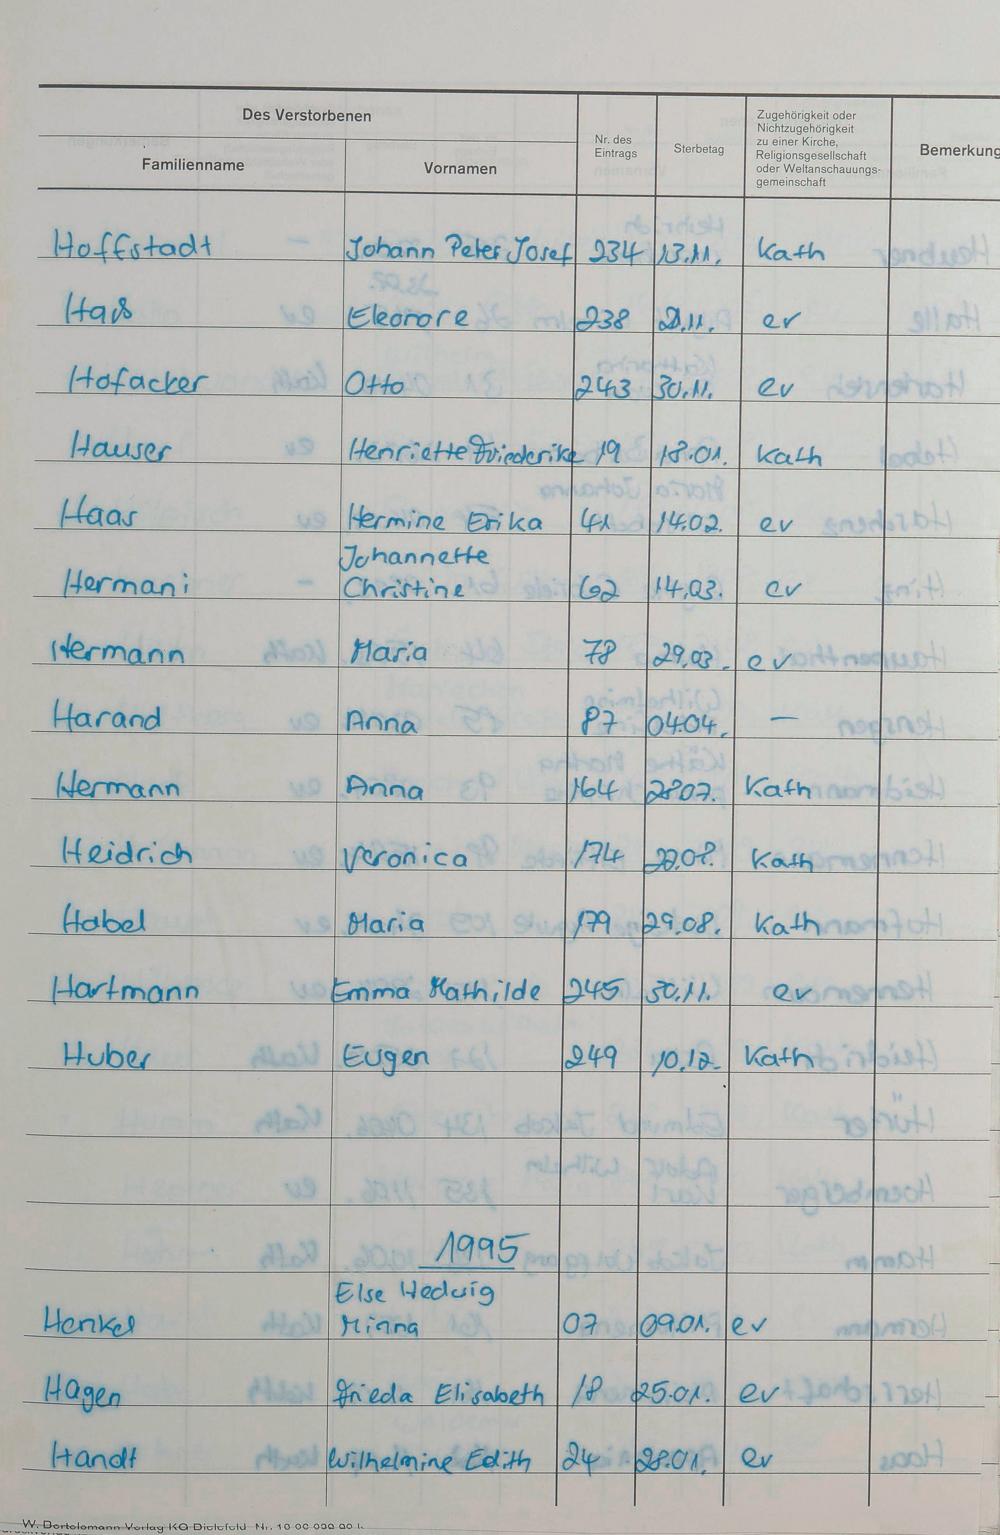 Des Verstorbenen
Familienname Vornamen Nr. des Eintrags Sterbetag Zugehörigkeit oder Nichtzugehörigkeit zu einer Kirche, Religionsgesellschaft oder Weltanschauungs-gemeinschaft Bemerkung
Hoffstadt Johann Peter Josef 234 13.11. Kath
Haß Eleonore 238 21.11. ev
Hofacker Otto 243 30.11. ev
Hauser Henriette Friederike 19 18.01. Kath
Haas Hermine Erika 41 14.02. ev
Johannette
Hermani Christine 62 14.03. ev
Hermann Maria 78 29.03. ev
Harand Anna 87 04.04. —
Hermann Anna 164 28.07. Kath
Heidrich Veronica 174 22.08. Kath
Habel Maria 179 29.08. Kath
Hartmann Emma Mathilde 245 30.11. ev
Huber Eugen 249 10.12. Kath
1995
Else Hedwig
Henkel Minna 07 09.01. ev
Hagen Frieda Elisabeth 18 25.01. ev
Handt Wilhelmine Edith 24 28.01. ev